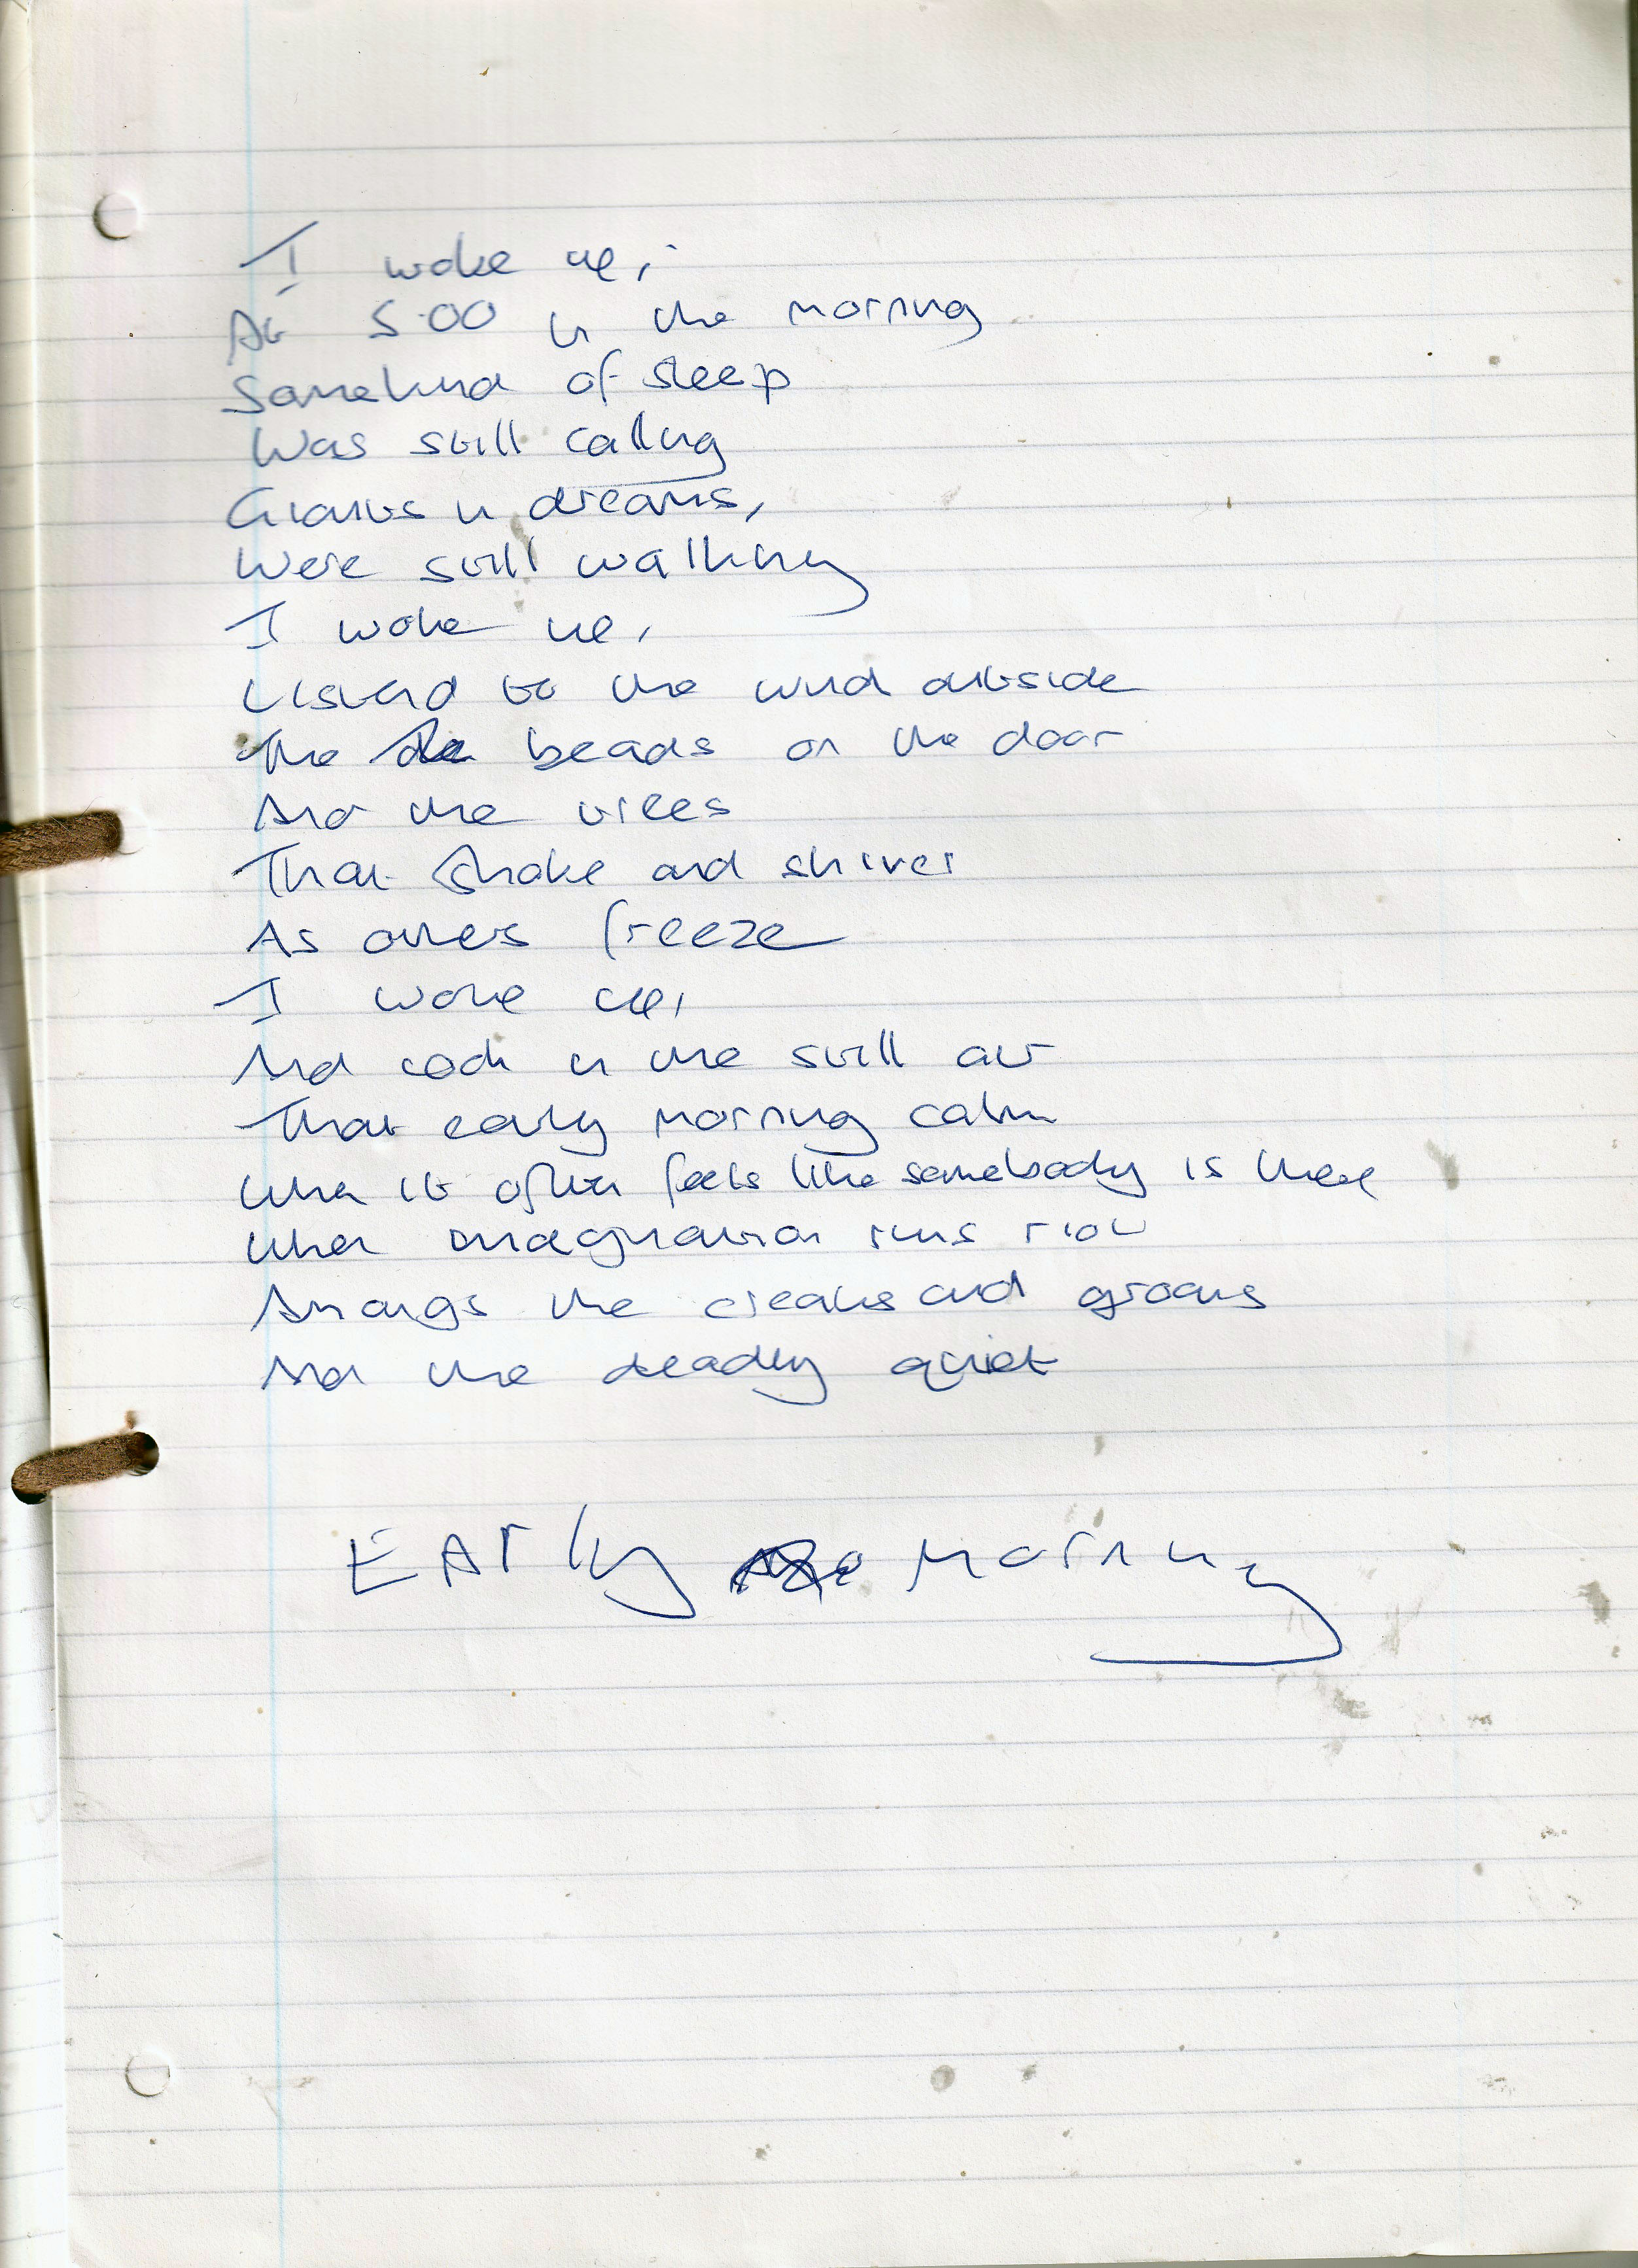 I woke up,
At 5.00 in the morning
Some kind of sleep
Was still calling
Giants in dreams,
Were still walking
I woke up,
Listend to the wind outside
The beads on the door
And the trees
That shake and shiver
As others freeze
I woke up,
And in the still air
That early morning calm
When it often feels like somebody is there
When imagination runs riot
Amongs the creaks and groans
And the deadly quiet
EArly Morning